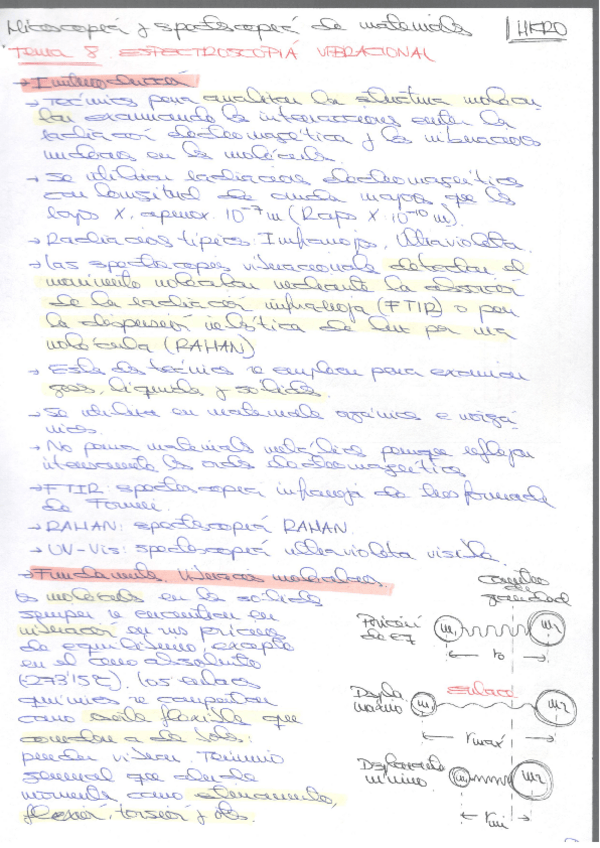 Microscopía y espectroscopía de materiales
Tema 8 ESPECTROSCOPIA VIBRACIONAL
→ Introducción
→ Técnicas para analizar la estructura molecu
lar examinando las interacciones entre la
radiación electromagnética y las vibraciones
nucleares en las moléculas.
→ Se utilizan radiaciones electromagnéticas
con longitud de onda mayor que los
rayos X, aprox. 10⁻⁷ m (Rayos X 10⁻¹⁰ m).
→ Radiaciones típicas: Infrarrojo, Ultravioleta.
→ Las espectroscopías vibracionales detectan el
movimiento molecular mediante la absorción
de la radiación infrarroja (FTIR) o por
la dispersión inelástica de luz por una
molécula (RAMAN)
→ Estas dos técnicas se emplean para examinar
gases, líquidos y sólidos.
→ Se utiliza en materiales orgánicos e inorgá
nicos.
→ No para materiales metálicos porque reflejan
intensamente las ondas electromagnéticas
→ FTIR: espectroscopía infrarroja de transformada
de Fourier.
→ RAMAN: espectroscopía RAMAN.
→ UV-Vis: espectroscopía ultravioleta visible.
→ Fundamento. Vibraciones moleculares.
Las moléculas en los sólidos
siempre se encuentran en
vibración en sus posiciones
de equilibrio excepto
en el cero absoluto
(-273'15ºC). Los enlaces
químicos se comportan
como muelle flexible que
pueden vibrar. Término
general que
movimientos como estiramiento,
flexión, torsión y
centro
de
gravedad
Posición
de eq
m₁
m₂
r₀
Despla
máximo
enlace
m₁
m₂
rmax
Desplazamiento
mínimo
m₁
m₂
rmin